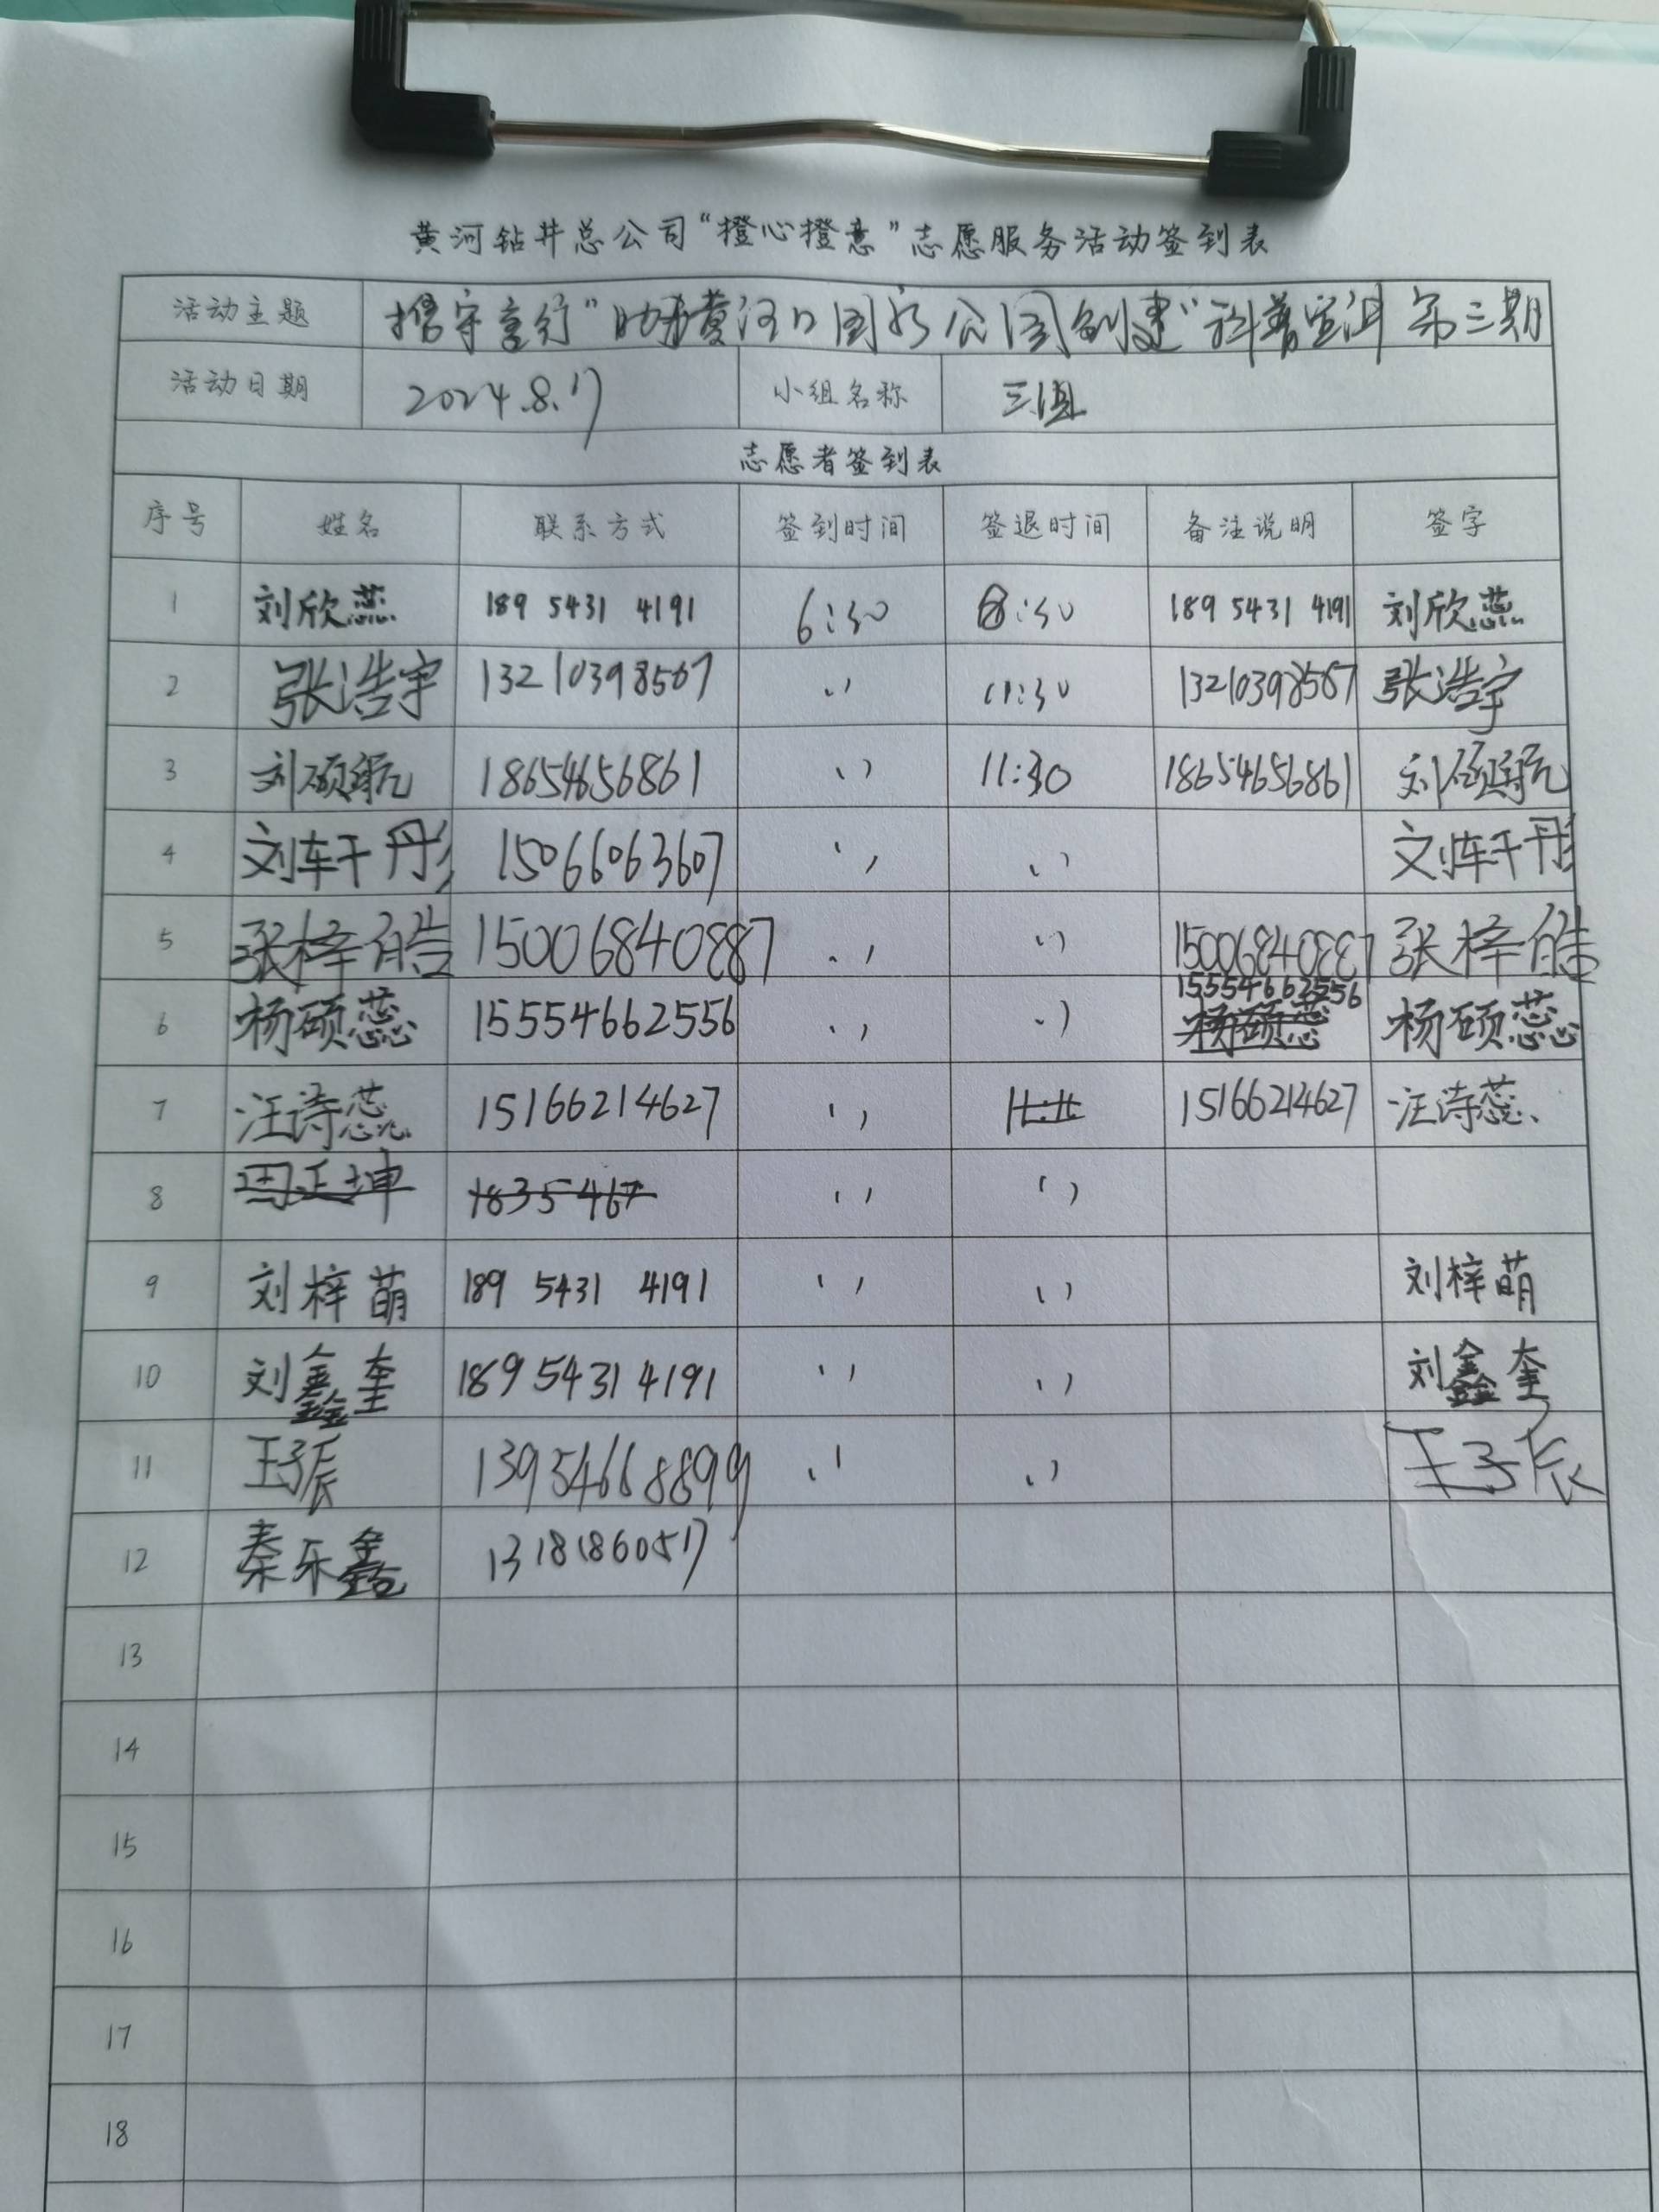 黄河钻井总公司“橙心橙意”志愿服务活动签到表
活动主题 携守言行“助力黄河口国家公园创建”科普宣讲 第三期
活动日期 2024.8.17 小组名称 三组
志愿者签到表
序号 姓名 联系方式 签到时间 签退时间 备注说明 签字
1 刘欣蕊 189 5431 4191 6:30 8:30 189 5431 4191 刘欣蕊
2 张浩宇 13210398567 〃 11:30 13210398567 张浩宇
3 刘硕航 18654656861 〃 11:30 18654656861 刘硕航
4 刘轩彤 15066063607 〃 〃 刘轩彤
5 张梓皓 15006840887 〃 〃 15006840887 张梓皓
6 杨硕蕊 15554662556 〃 〃 15554662556 杨硕蕊 杨硕蕊
7 汪诗蕊 15166214627 〃 15166214627 汪诗蕊
8 周正坤 1835467 〃 〃
9 刘梓萌 189 5431 4191 〃 〃 刘梓萌
10 刘鑫奎 189 5431 4191 〃 〃 刘鑫奎
11 王子辰 13954668899 〃 〃 王子辰
12 秦乐鑫 13181860517
13
14
15
16
17
18